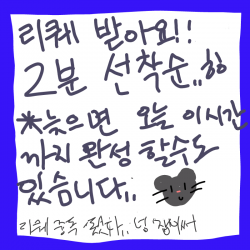 리퀘 받아요!!
2분 선착순,,힝
*늦으면 오늘 이시간
까지 완성 할수도
있습니다,,
리퀘 중독 됐다..